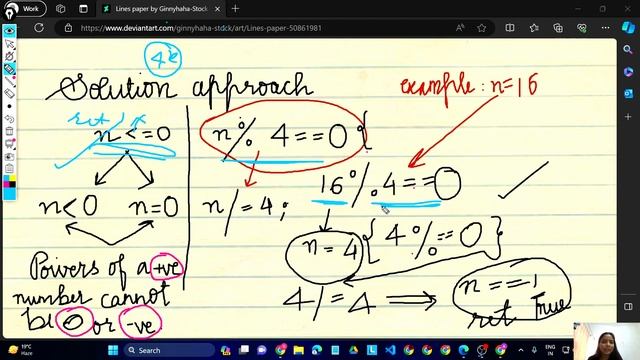 Work
Lines paper by Ginnyhaha-Stock
https://www.deviantart.com/ginnyhaha-stock/art/Lines-paper-50861981
Solution approach
example: n=16
n<=0
n<0 n=0
Powers of a +ve
number cannot
be 0 or -ve
n% 4==0{
n/=4;
16%4==0
n=4 {4%==0}
4/=4 ⟹ n==1
ret True
19°C
Haze
Search
ENG
IN